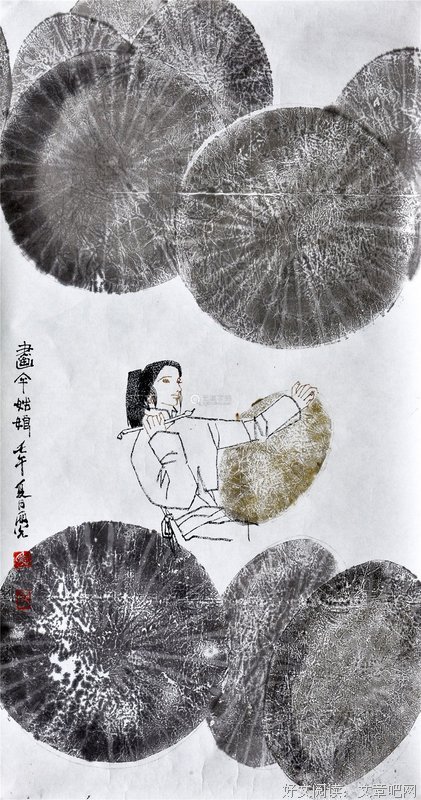 畫伞姑娘 壬午夏日
好文阅读，文章吧网